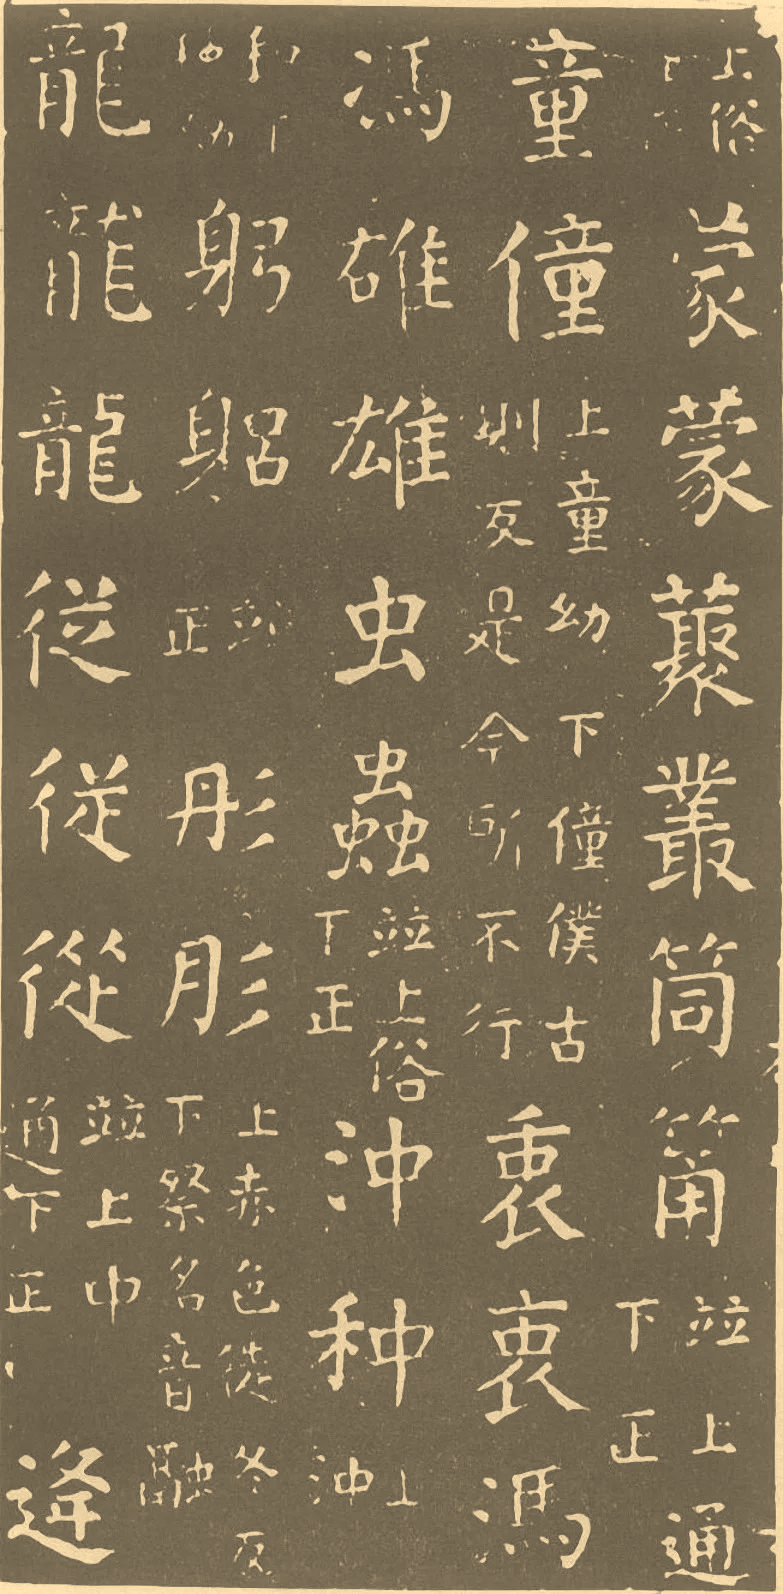 上俗蒙蒙藂叢筒筩並上通下正
童僮上童幼下僮僕古則反是今所不行衷衷馮
馮雄雄虫蟲並上俗下正沖种上沖
和下幼躬躳並正彤肜上赤色徒冬反下祭名音融
龍龍龍従従從並上中通下正逢